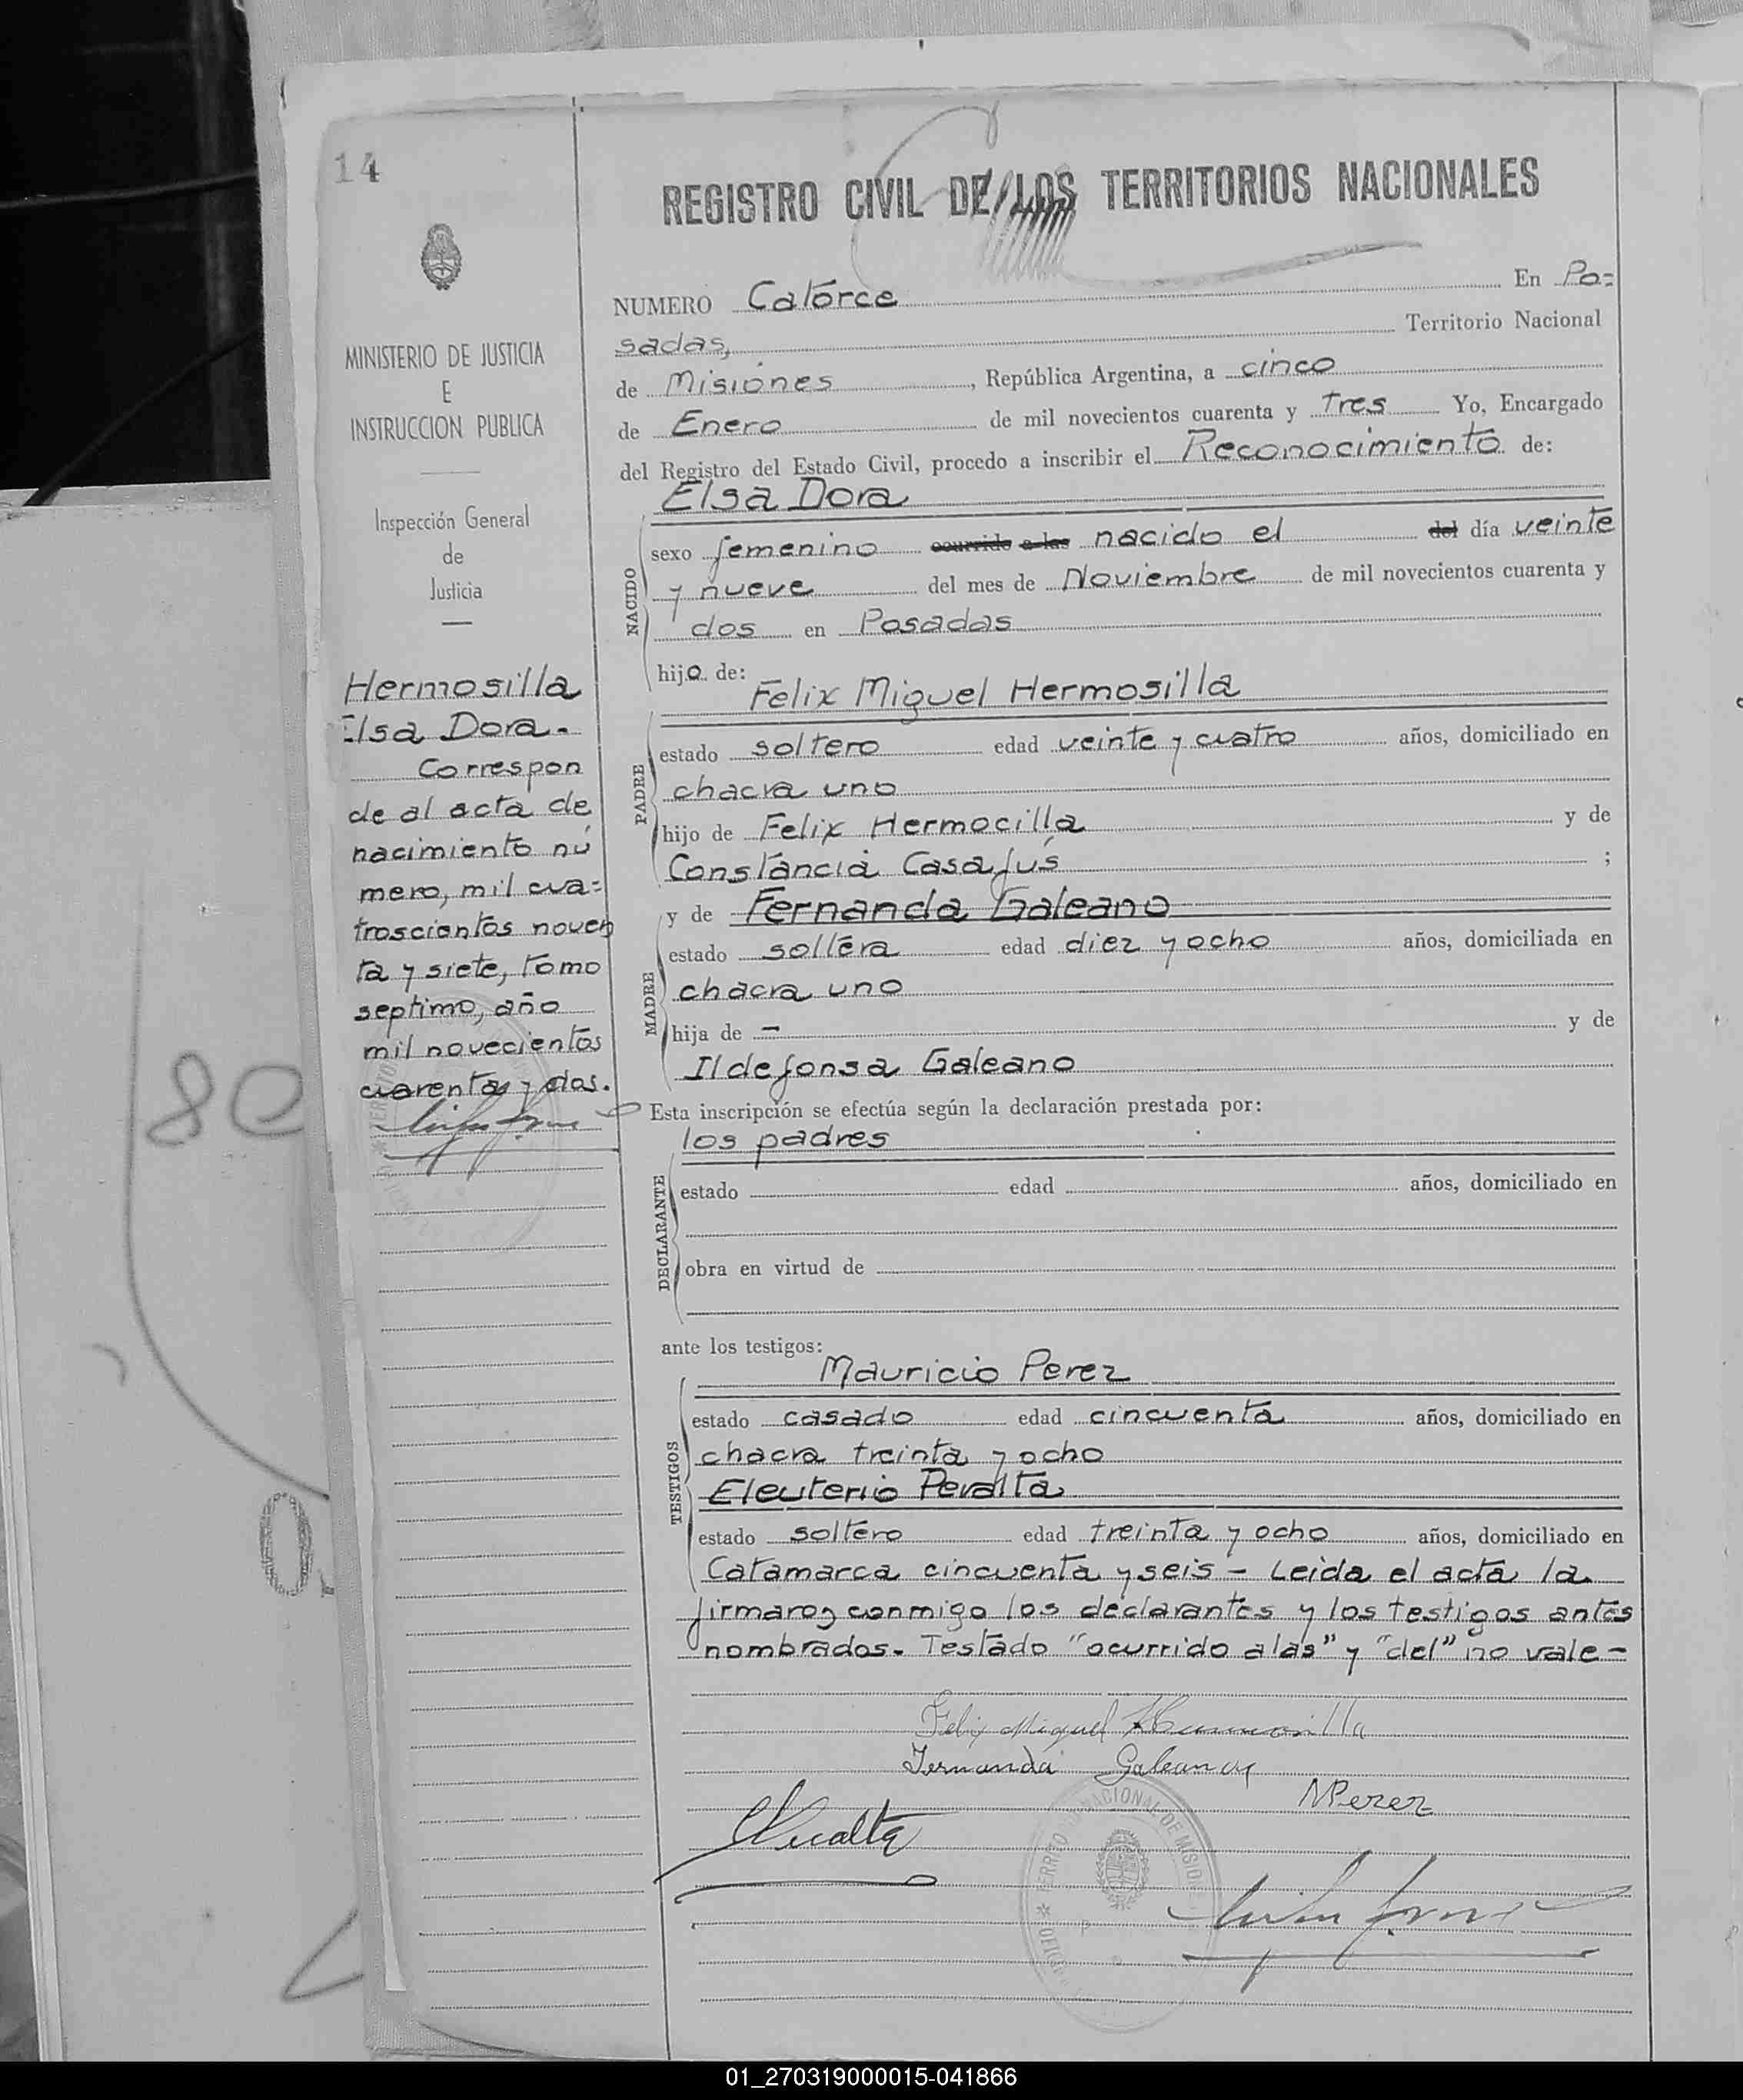 14
REGISTRO CIVIL DE LOS TERRITORIOS NACIONALES
MINISTERIO DE JUSTICIA
E
INSTRUCCION PUBLICA
Inspección General
de
Justicia
Hermosilla
Elsa Dora.
Correspon
de al acta de
nacimiento nú
mero, mil cua=
troscientos noven
ta y siete, tomo
septimo, año
mil novecientos
cuarenta y dos.
NUMERO Catorce En Po=
sadas, Territorio Nacional
de Misiones, República Argentina, a cinco
de Enero de mil novecientos cuarenta y tres Yo, Encargado
del Registro del Estado Civil, procedo a inscribir el Reconocimiento de:
Elsa Dora
NACIDO
sexo femenino ocurrido a las nacido el del día veinte
y nueve del mes de Noviembre de mil novecientos cuarenta y
dos en Posadas
hija de:
Felix Miguel Hermosilla
PADRE
estado soltero edad veinte y cuatro años, domiciliado en
chacra uno
hijo de Felix Hermocilla y de
Constancia Casafús ;
y de Fernanda Galeano
MADRE
estado soltera edad diez y ocho años, domiciliada en
chacra uno
hija de — y de
Ildefonsa Galeano
Esta inscripción se efectúa según la declaración prestada por:
los padres
DECLARANTE
estado edad años, domiciliado en
obra en virtud de
ante los testigos:
Mauricio Perez
TESTIGOS
estado casado edad cincuenta años, domiciliado en
chacra treinta y ocho
Eleuterio Peralta
estado soltero edad treinta y ocho años, domiciliado en
Catamarca cincuenta y seis - Leida el acta la
firmaron conmigo los declarantes y los testigos antes
nombrados. Testado "ocurrido a las" y "del" no vale -
Felix Miguel Hermosilla
Fernanda Galeano
MPerez
EPeralta
80
01_270319000015-041866